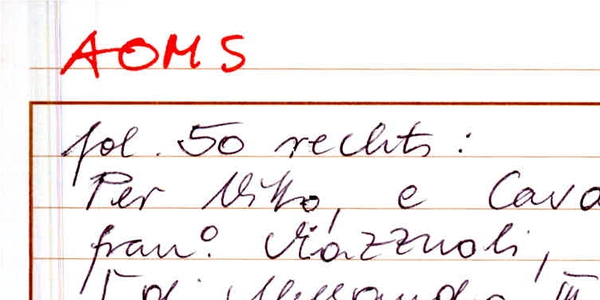 AOMS
fol. 50 rechts:
Per Vitto, e Cava
fran.º Mazzuoli,